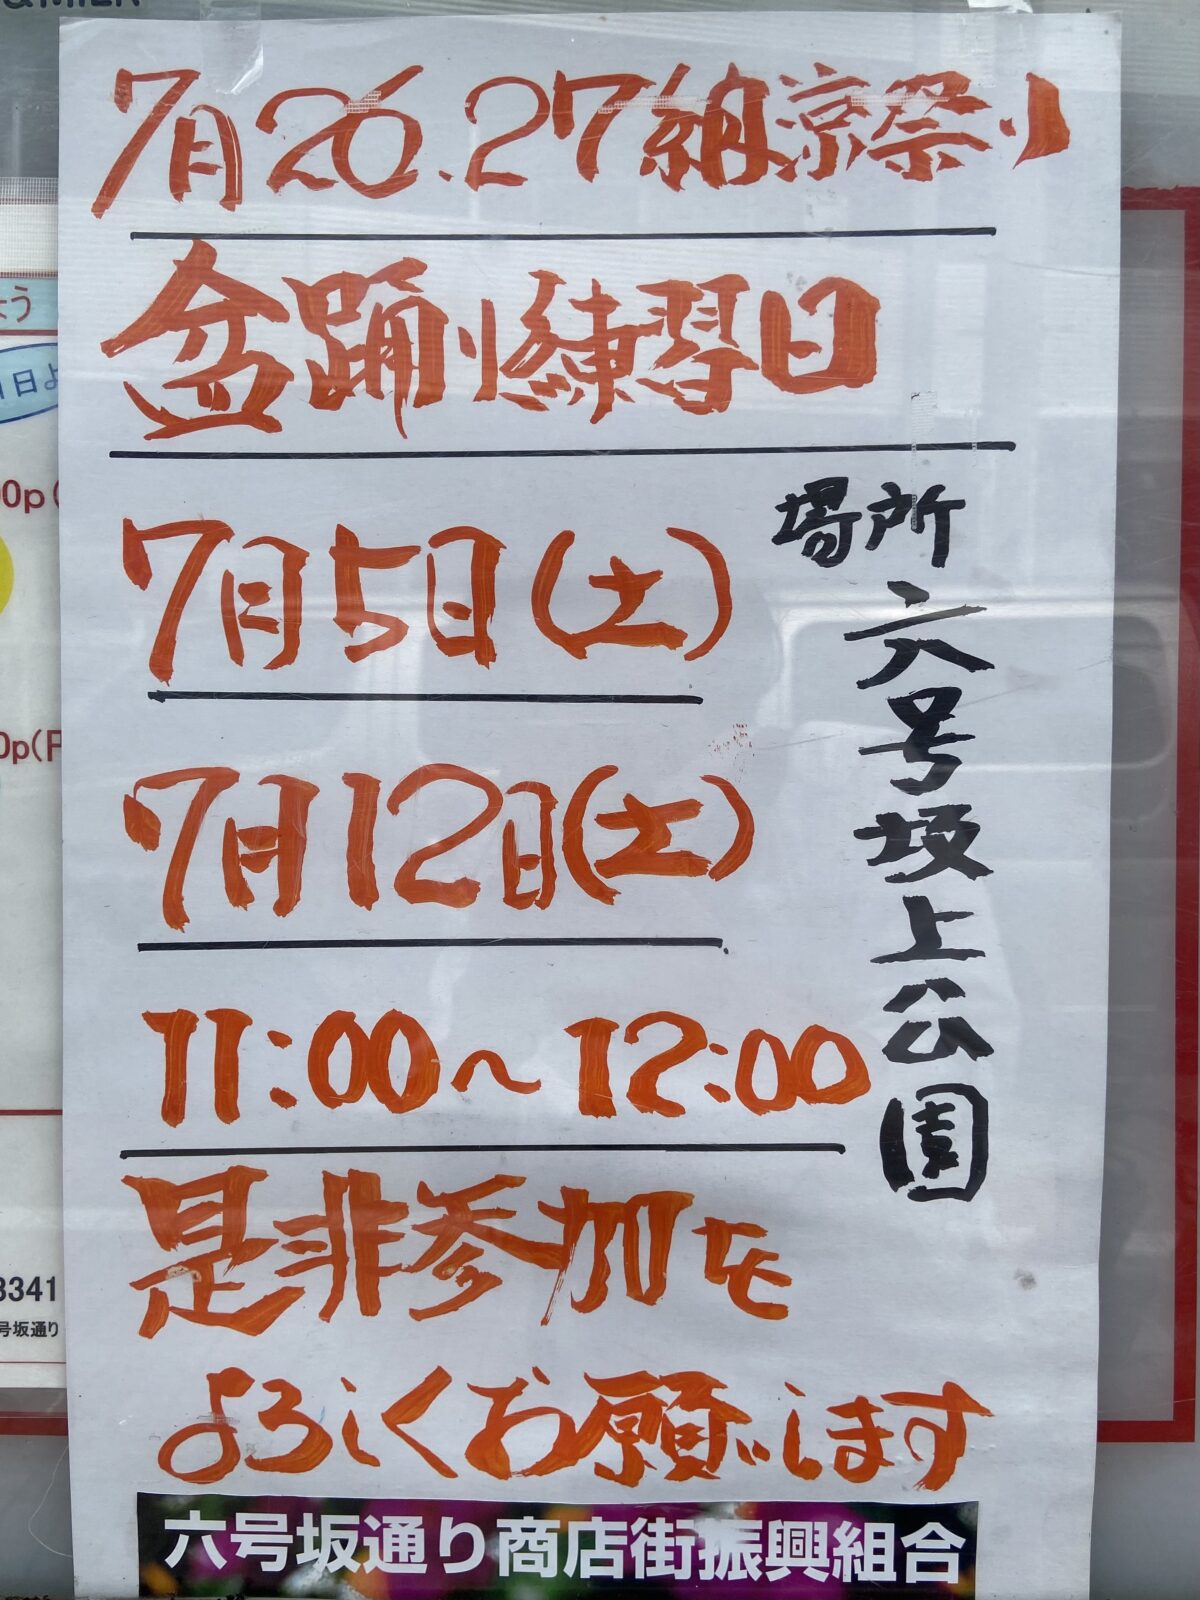 7月26.27納涼祭り
盆踊り練習日
場所
六号坂上公園
7月5日(土)
7月12日(土)
11:00～12:00
是非参加を
よろしくお願いします
六号坂通り商店街振興組合
よう
1日よ
00p(
0p(F
3341
号坂通り